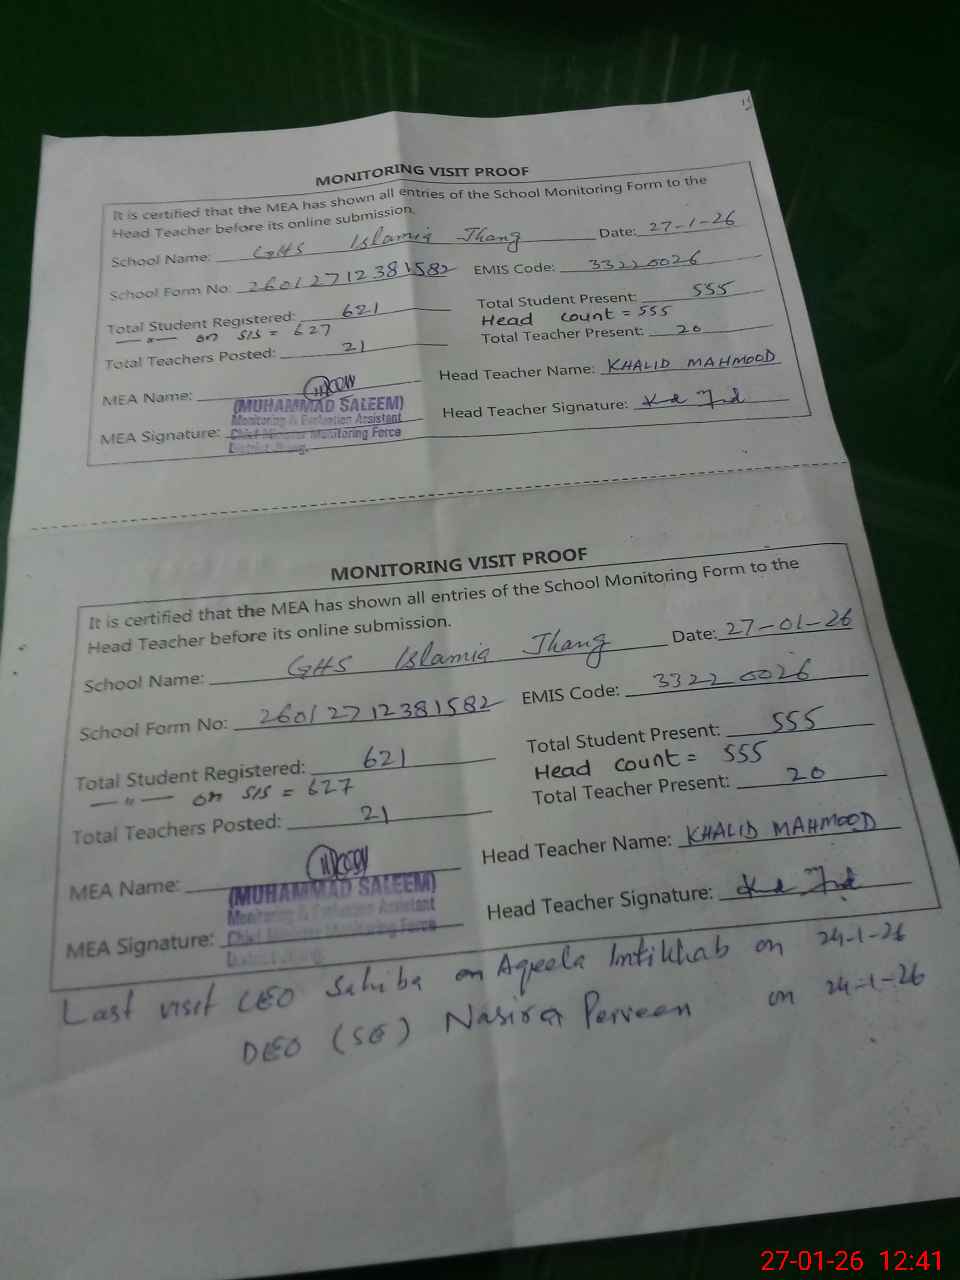 MONITORING VISIT PROOF
It is certified that the MEA has shown all entries of the School Monitoring Form to the
Head Teacher before its online submission.
School Name: GHS Islamia Jhang Date: 27-1-26
School Form No: 26012712381582 EMIS Code: 33220026
Total Student Registered: 621 Total Student Present: 555
—"— on SIS = 627 Head count = 555
Total Teachers Posted: 21 Total Teacher Present: 20
MEA Name: Head Teacher Name: KHALID MAHMOOD
(MUHAMMAD SALEEM)
Monitoring & Evaluation Assistant
MEA Signature: Chief Minister Monitoring Force Head Teacher Signature:
District Jhang.
MONITORING VISIT PROOF
It is certified that the MEA has shown all entries of the School Monitoring Form to the
Head Teacher before its online submission.
School Name: GHS Islamia Jhang Date: 27-01-26
School Form No: 26012712381582 EMIS Code: 33220026
Total Student Registered: 621 Total Student Present: 555
—"— on SIS = 627 Head count = 555
Total Teachers Posted: 21 Total Teacher Present: 20
MEA Name: Head Teacher Name: KHALID MAHMOOD
(MUHAMMAD SALEEM)
Monitoring & Evaluation Assistant
MEA Signature: Chief Minister Monitoring Force Head Teacher Signature:
District Jhang.
Last visit CEO Sahiba on Aqeela Intikhab on 24-1-26
DEO (SE) Nasira Perveen on 24-1-26
27-01-26 12:41